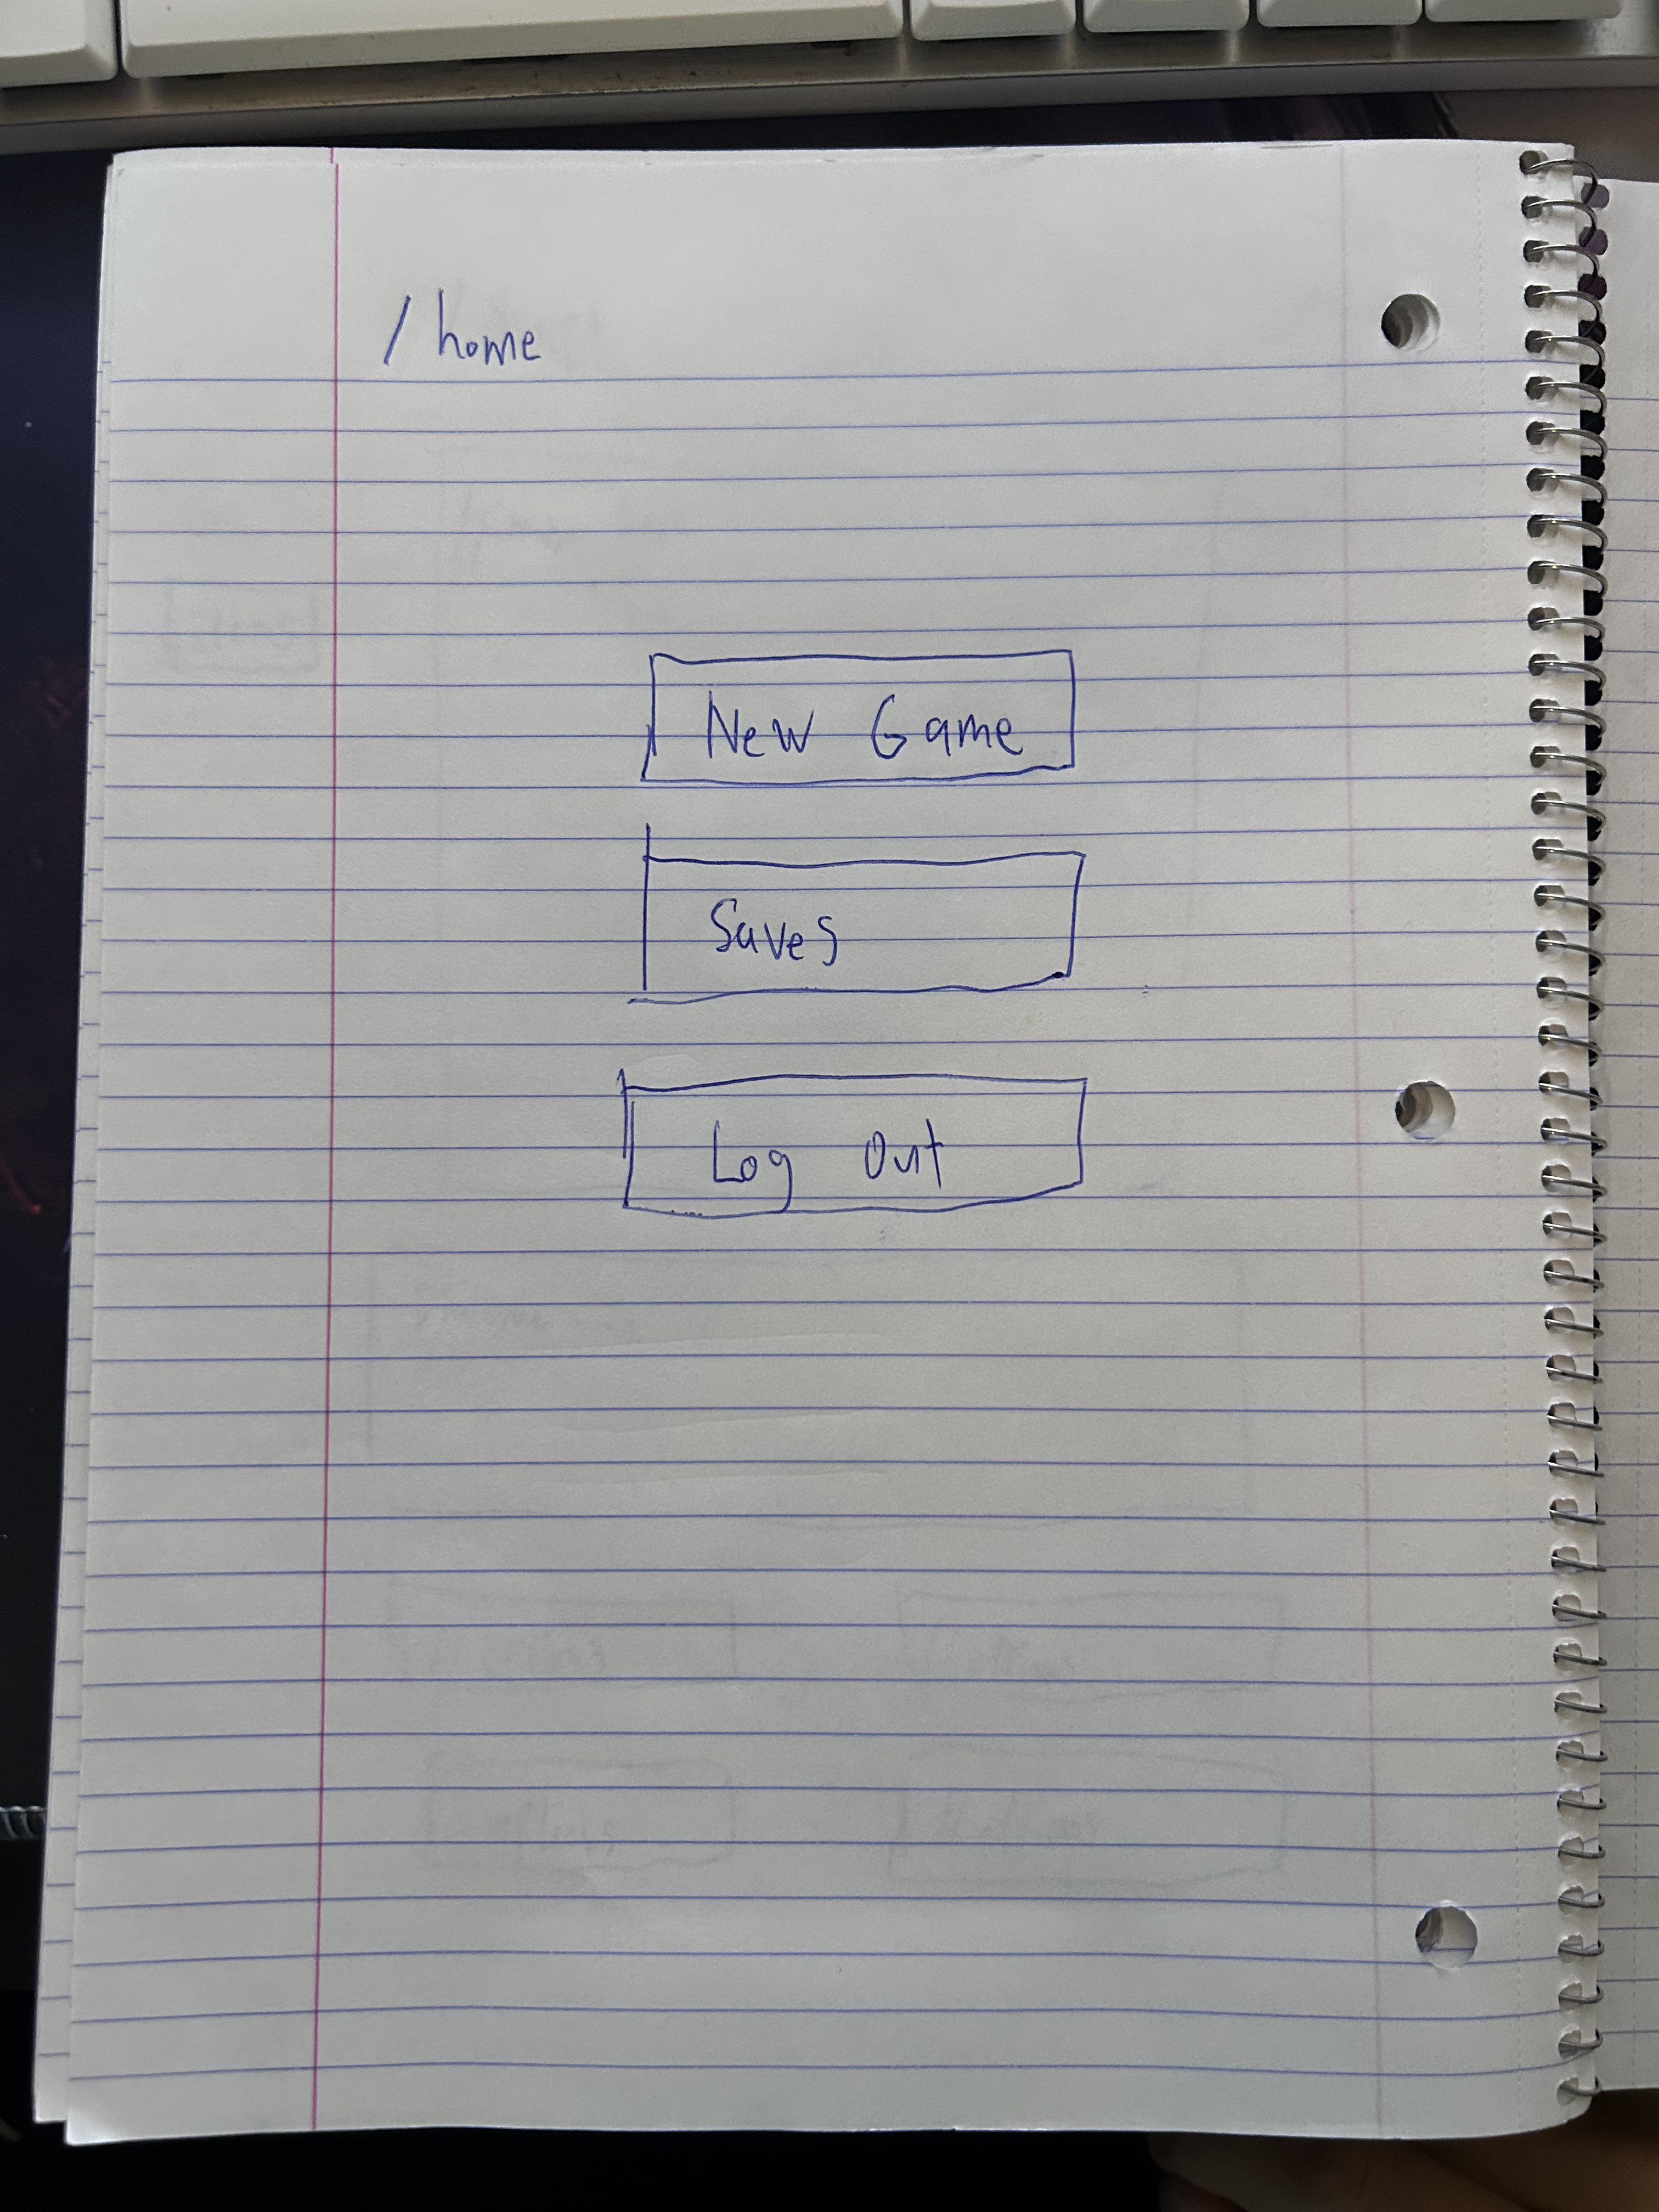 / home
New Game
Saves
Log Out